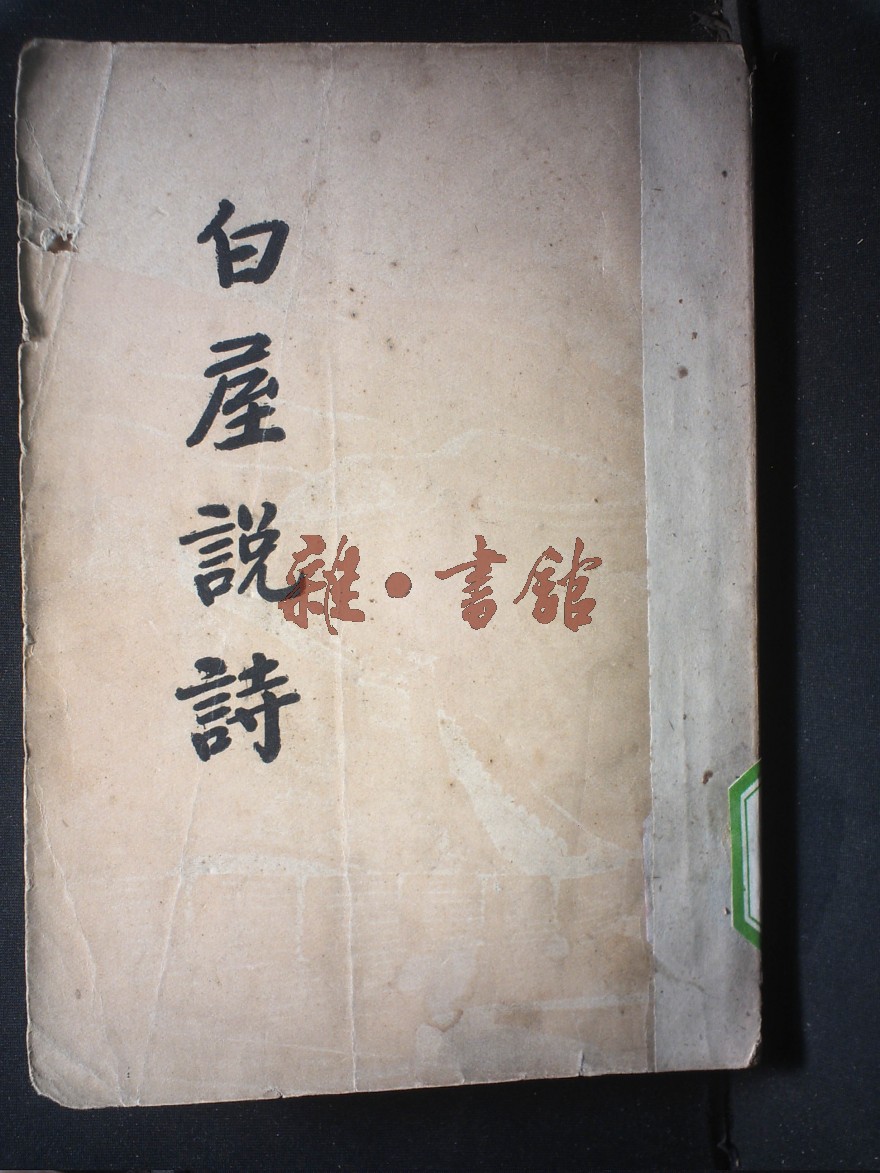 白屋説詩
雜·書館